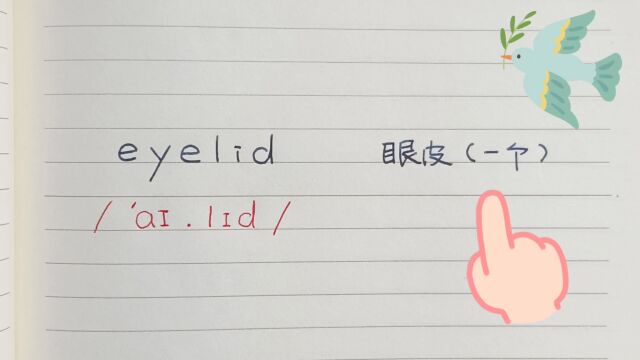 eyelid 眼皮（一个）
/ˈaɪ.lɪd/